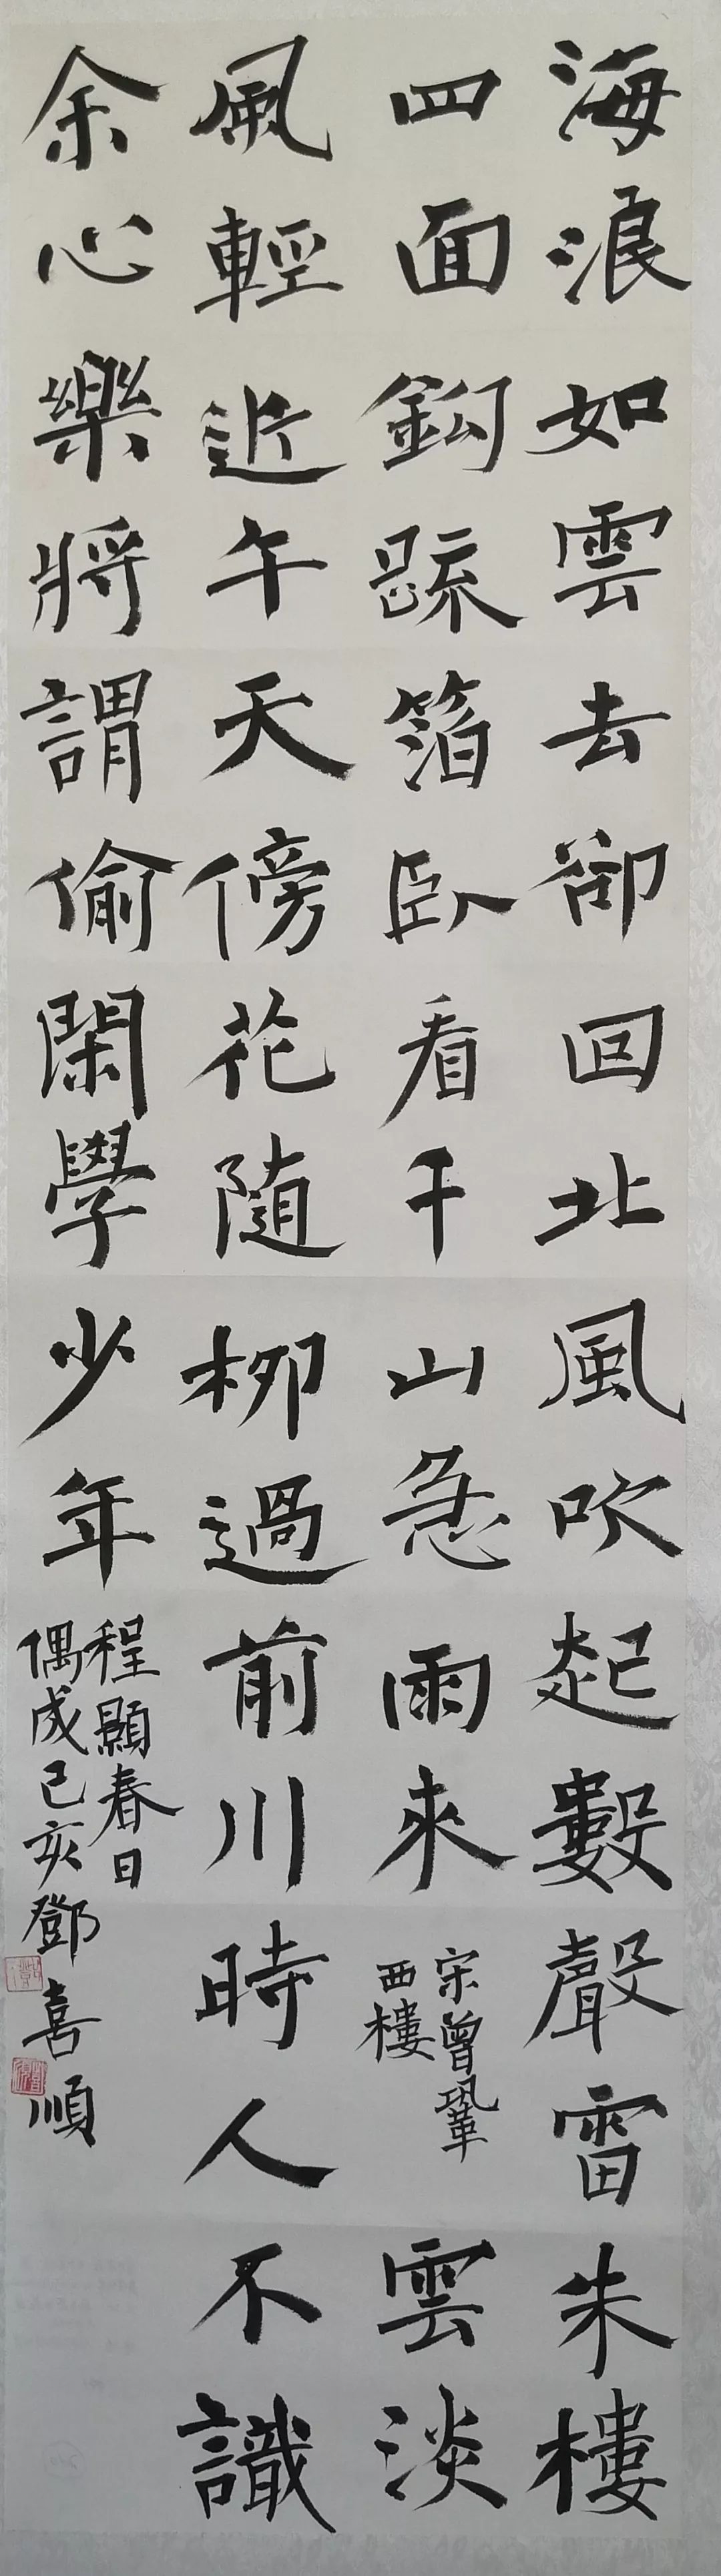 海浪如雲去卻回北風吹起數聲雷朱樓
四面鈎疏箔卧看千山急雨來
宋曾鞏
西樓
雲淡
風輕近午天傍花隨柳過前川時人不識
余心樂將謂偷閑學少年
程顥春日
偶成己亥鄧喜順